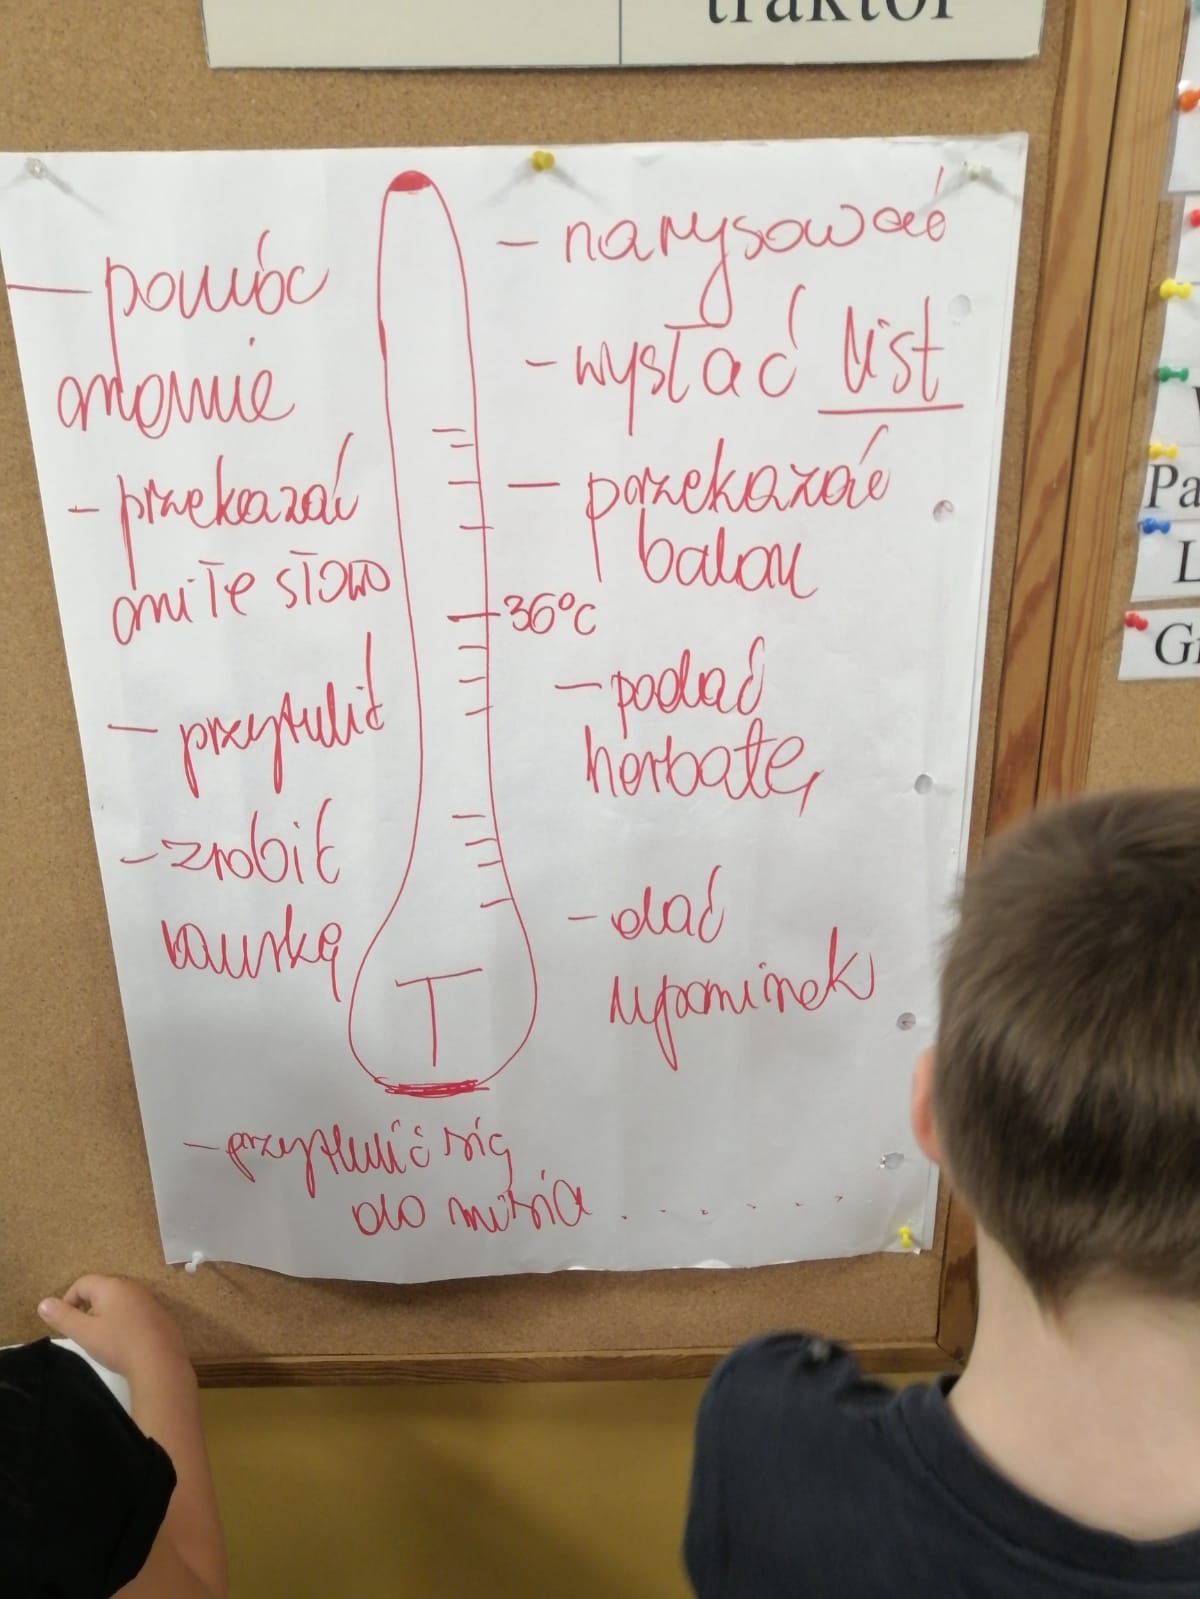 traktor
- pomóc
mamie
- przekazać
miłe słowo
- przytulić
- zrobić
laurkę
- narysować
- wysłać list
- przekazać
balon
36°C
- podać
herbatę
- dać
upominek
T
- przytulić się
do misia . . . . . .
Pa
L
G